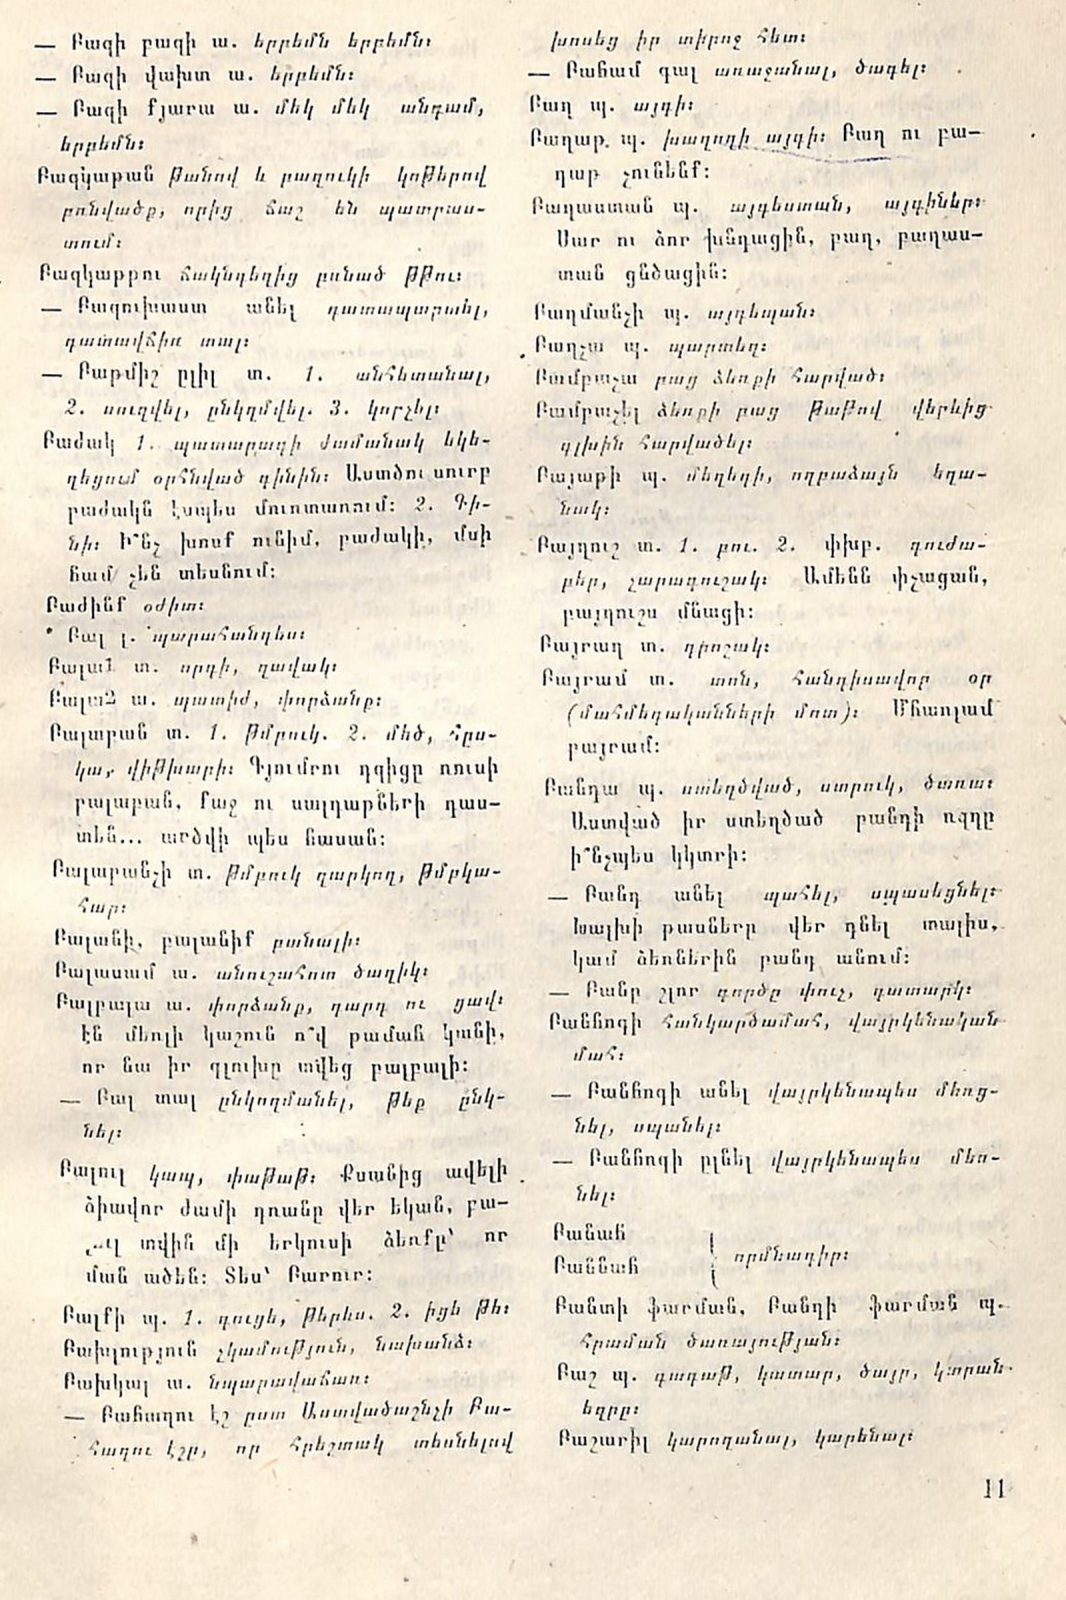 — Բազի բազի ա. երբեմն երբեմն։
— Բազի վախտ ա. երբեմն։
— Բազի ֆյարա ա. մեկ մեկ անգամ,
երբեմն։
Բազկաթան թանով և բազուկի կոթերով
բռնվածք, որից ճաշ են պատրաս-
տում։
Բազկաթթու ճակնդեղից բռնած թթու։
— Բազուխաստ անել դատապարտել,
դատավճիռ տալ։
— Բաթմիշ ըլիլ տ. 1. անհետանալ,
2. սուզվել, ընկղմվել. 3. կորչել։
Բաժակ 1. պատարագի ժամանակ եկե-
ղեցում օրհնված գինին։ Աստծու սուրբ
բաժակն էսպես մուռտառում։ 2. Գի-
նի։ Ի՞նչ խոսք ունիմ, բաժակի, մսի
համ չեն տեսնում։
Բաժինք օժիտ։
Բալ լ. պարահանդես։
Բալա1 տ. որդի, զավակ։
Բալա2 ա. պատիժ, փորձանք։
Բալաբան տ. 1. Թմբուկ. 2. մեծ, հըս-
կա, վիթխարի։ Գյումրու դզիցը ռուսի
բալաբան, քաջ ու սալդաթների դաս-
տեն... արծվի պես հասան։
Բալաբանչի տ. թմբուկ զարկող, թմբկա-
հար։
Բալանի, բալանիք բանալի։
Բալասամ ա. անուշահոտ ծաղիկ։
Բալբալա ա. փորձանք, դարդ ու ցավ։
Էն մեռլի կաշուն ո՞վ թամահ կանի,
որ նա իր գլուխը տվեց բալբալի։
— Բալ տալ ընկողմանել, թեք ընկ-
նել։
Բալուլ կապ, փաթաթ։ Քսանից ավելի
ձիավոր ժամի դռանը վեր եկան, բա-
լուլ տվին մի երկուսի ձեռքը՝ որ
ման ածեն։ Տես՝ Բարուր։
Բալքի պ. 1. գուցե, թերևս. 2. իցե թե։
Բախլություն չկամություն, նախանձ։
Բախկալ ա. նպարավաճառ։
— Բահաղու էշ ըստ Աստվածաշնչի Բա-
հաղու էշը, որ հրեշտակ տեսնելով
խոսեց իր տիրոջ հետ։
— Բահամ գալ առաջանալ, ծագել։
Բաղ պ. այգի։
Բաղաթ պ. խաղողի այգի։ Բաղ ու բա-
ղաթ չունենք։
Բաղաստան պ. այգեստան, այգիներ։
Սար ու ձոր խնդացին, բաղ, բաղաս-
տան ցնծացին։
Բաղմանչի պ. այգեպան։
Բաղչա պ. պարտեզ։
Բամբաչա բաց ձեռքի հարված։
Բամբաչել ձեռքի բաց թաթով վերևից
գլխին հարվածել։
Բայաթի պ. մեղեդի, ողբաձայն եղա-
նակ։
Բայղուշ տ. 1. բու. 2. փխբ. գուժա-
բեր, չարագուշակ։ Ամենն փչացան,
բայղուշս մնացի։
Բայրաղ տ. դրոշակ։
Բայրամ տ. տոն, հանդիսավոր օր
(մահմեդականների մոտ)։ Մհառլամ
բայրամ։
Բանդա պ. ստեղծված, ստրուկ, ծառա։
Աստված իր ստեղծած բանդի ռզղը
ի՞նչպես կկտրի։
— Բանդ անել պահել, սպասեցնել։
Խալխի թասները վեր դնել տալիս,
կամ ձեռներին բանդ անում։
— Բանը շլոր գործը փուչ, դատարկ։
Բանհոգի հանկարծամահ, վայրկենական
մահ։
— Բանհոգի անել վայրկենապես մեռց-
նել, սպանել։
— Բանհոգի ըլնել վայրկենապես մեռ-
նել։
Բանահ
Բաննահ
որմնադիր։
Բանտի ֆարման, Բանդի ֆարման պ.
հրաման ծառայության։
Բաշ պ. գագաթ, կատար, ծայր, կտրան
եզրը։
Բաշարիլ կարողանալ, կարենալ։
11